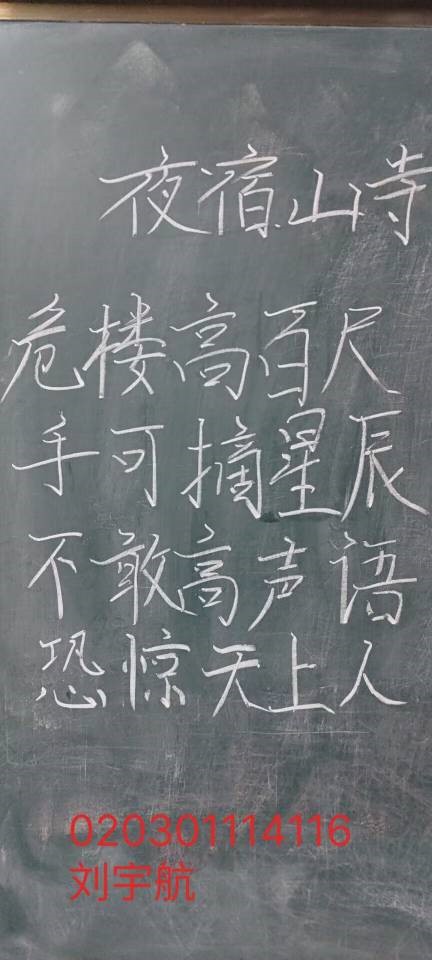 夜宿山寺
危楼高百尺
手可摘星辰
不敢高声语
恐惊天上人
020301114116
刘宇航